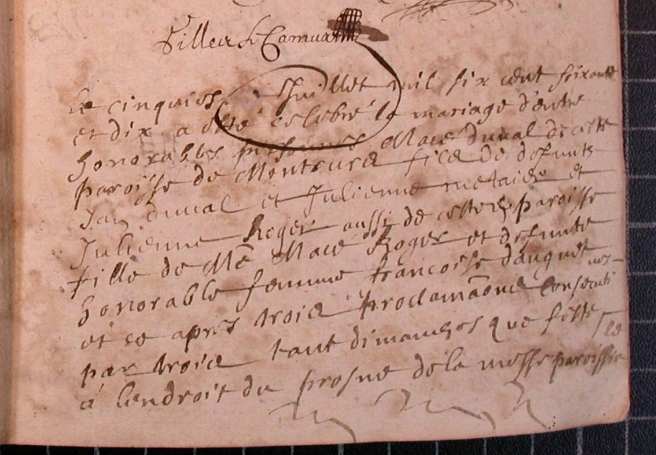 Le cinquies Juillet mil six cent soixante
et dix a esté celebré le mariage d'entre
honorables personnes Macé Duval de cette
paroisse de filz de defunts
Jan Duval et Julienne metaier et
Julienne Roger aussi de cette paroisse
fille de Me Macé Roger et defunte
honorable femme francoise
et ce apres trois proclamaõns consecuti
par trois tant dimanches que feste
a lendroit du prosne de la messe paroissia